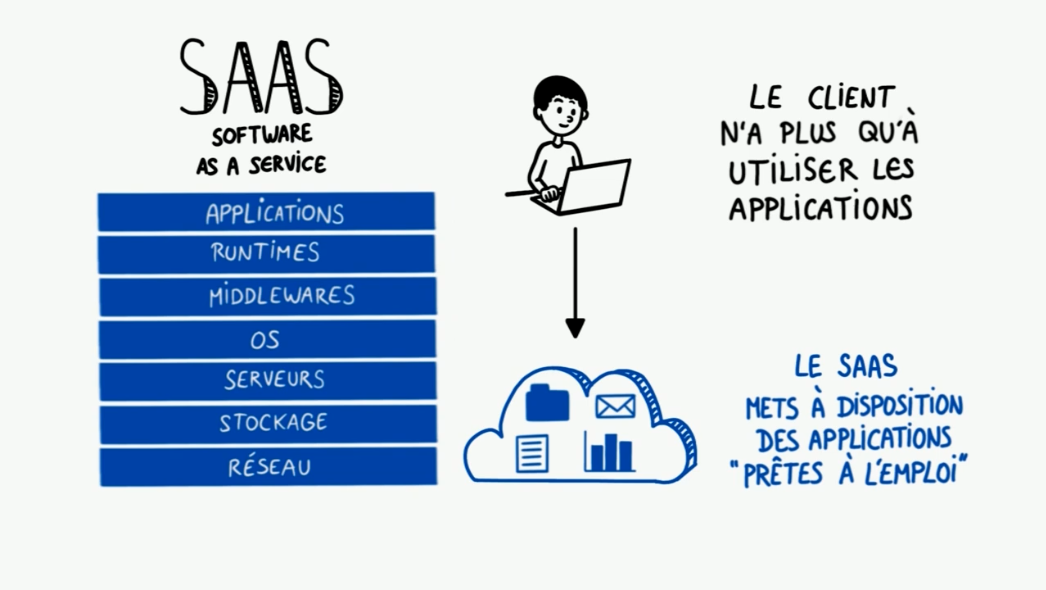 SAAS
SOFTWARE
AS A SERVICE
APPLICATIONS
RUNTIMES
MIDDLEWARES
OS
SERVEURS
STOCKAGE
RÉSEAU
LE CLIENT
N'A PLUS QU'À
UTILISER LES
APPLICATIONS
LE SAAS
METS À DISPOSITION
DES APPLICATIONS
"PRÊTES À L'EMPLOI"